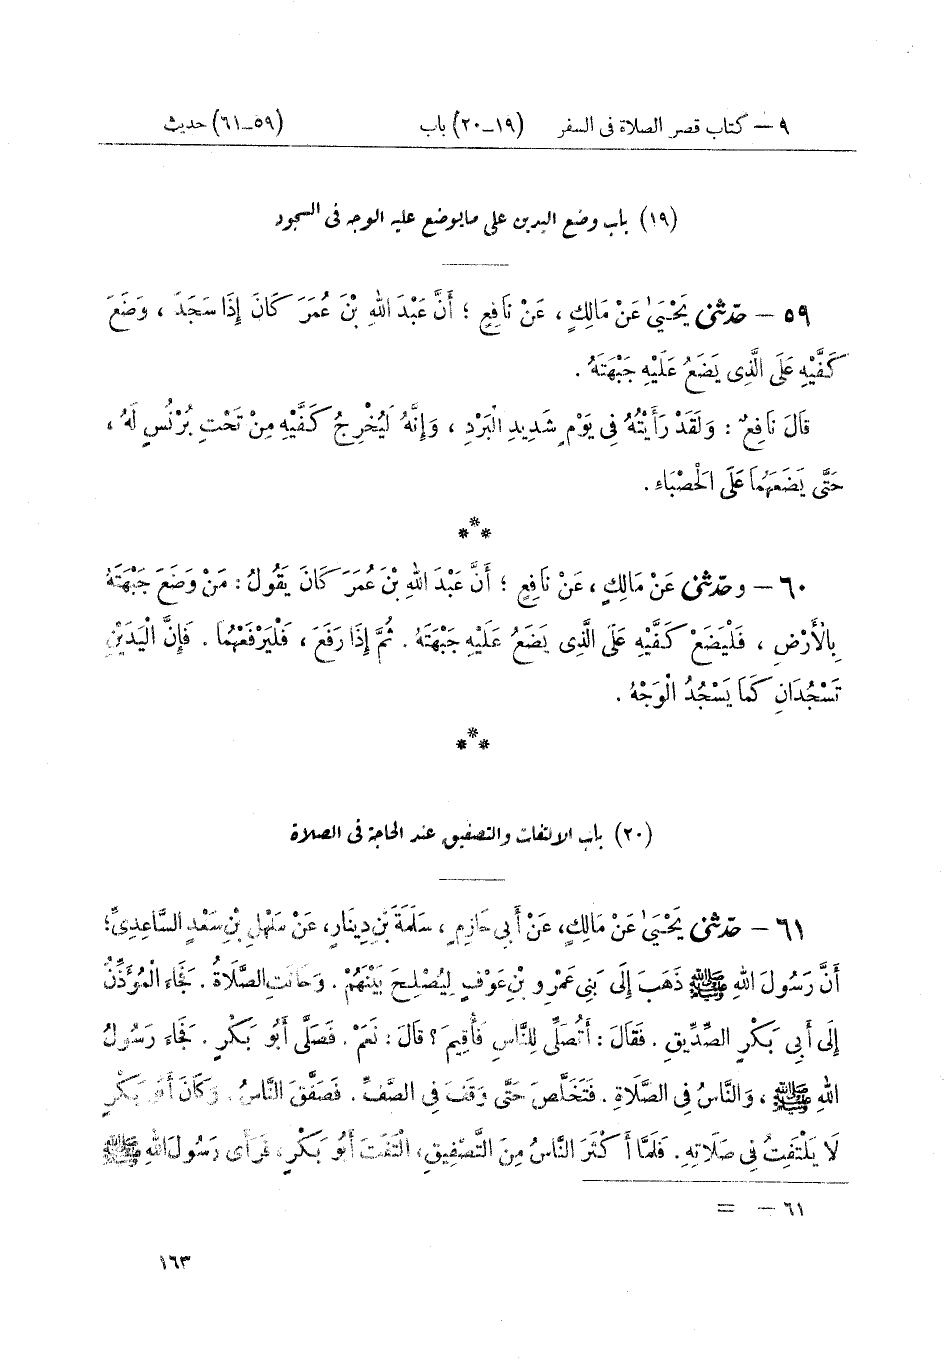 ٩ – كتاب قصر الصلاة فى السفر (١٩ـ٢٠) باب (٥٩ـ٦١) حديث
(١٩) باب وضع اليدين على مايوضع عليه الوجه فى السجود
٥٩ – حدّثنى يَحْيَىٰ عَنْ مَالِكٍ ، عَنْ نَافِعٍ ؛ أَنَّ عَبْدَ اللهِ بْنَ عُمَرَ كَانَ إِذَا سَجَدَ ، وَضَعَ
كَفَّيْهِ عَلَى الَّذِى يَضَعُ عَلَيْهِ جَبْهَتَهُ .
قَالَ نَافِعٌ : وَلَقَدْ رَأَيْتُهُ فِى يَوْمٍ شَدِيدِ الْبَرْدِ ، وَإِنَّهُ لَيُخْرِجُ كَفَّيْهِ مِنْ تَحْتِ بُرْنُسٍ لَهُ ،
حَتَّى يَضَعَهُمَا عَلَى الْحَصْبَاءِ .
***
٦٠ – وحدّثنى عَنْ مَالِكٍ ، عَنْ نَافِعٍ ؛ أَنَّ عَبْدَ اللهِ بْنَ عُمَرَ كَانَ يَقُولُ : مَنْ وَضَعَ جَبْهَتَهُ
بِالْأَرْضِ ، فَلْيَضَعْ كَفَّيْهِ عَلَى الَّذِى يَضَعُ عَلَيْهِ جَبْهَتَهُ . ثُمَّ إِذَا رَفَعَ ، فَلْيَرْفَعْهُمَا . فَإِنَّ الْيَدَيْنِ
تَسْجُدَانِ كَمَا يَسْجُدُ الْوَجْهُ .
***
(٢٠) باب الالتفات والتصفيق عند الحاجة فى الصلاة
٦١ – حدّثنى يَحْيَىٰ عَنْ مَالِكٍ، عَنْ أَبِى حَازِمٍ ، سَلَمَةَ بْنِ دِينَارٍ، عَنْ سَهْلِ بْنِ سَعْدٍ السَّاعِدِىِّ؛
أَنَّ رَسُولَ اللهِ ﷺ ذَهَبَ إِلَى بَنِى عَمْرِو بْنِ عَوْفٍ لِيُصْلِحَ بَيْنَهُمْ . وَحَانَتِ الصَّلَاةُ . فَجَاءَ الْمُؤَذِّنُ
إِلَى أَبِى بَكْرٍ الصِّدِّيقِ . فَقَالَ : أَتُصَلِّى لِلنَّاسِ فَأُقِيمَ ؟ قَالَ : نَعَمْ . فَصَلَّى أَبُو بَكْرٍ . فَجَاءَ رَسُولُ
اللهِ ﷺ ، وَالنَّاسُ فِى الصَّلَاةِ . فَتَخَلَّصَ حَتَّى وَقَفَ فِى الصَّفِّ . فَصَفَّقَ النَّاسُ . وَكَانَ أَبُو بَكْرٍ
لَا يَلْتَفِتُ فِى صَلَاتِهِ. فَلَمَّا أَكْثَرَ النَّاسُ مِنَ التَّصْفِيقِ، الْتَفَتَ أَبُو بَكْرٍ، فَرَأَى رَسُولَ اللهِ ﷺ
٦١ – =
١٦٣